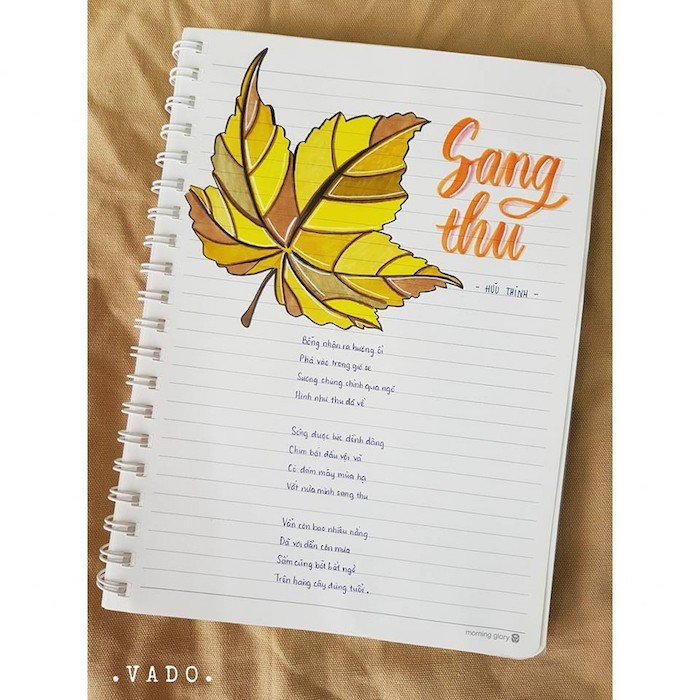 Sang
thu
- HỮU THỈNH -
Bỗng nhận ra hương ổi
Phả vào trong gió se
Sương chùng chình qua ngõ
Hình như thu đã về
Sông được lúc dềnh dàng
Chim bắt đầu vội vã
Có đám mây mùa hạ
Vắt nửa mình sang thu
Vẫn còn bao nhiêu nắng
Đã vơi dần cơn mưa
Sấm cũng bớt bất ngờ
Trên hàng cây đứng tuổi.
morning glory
.VADO.